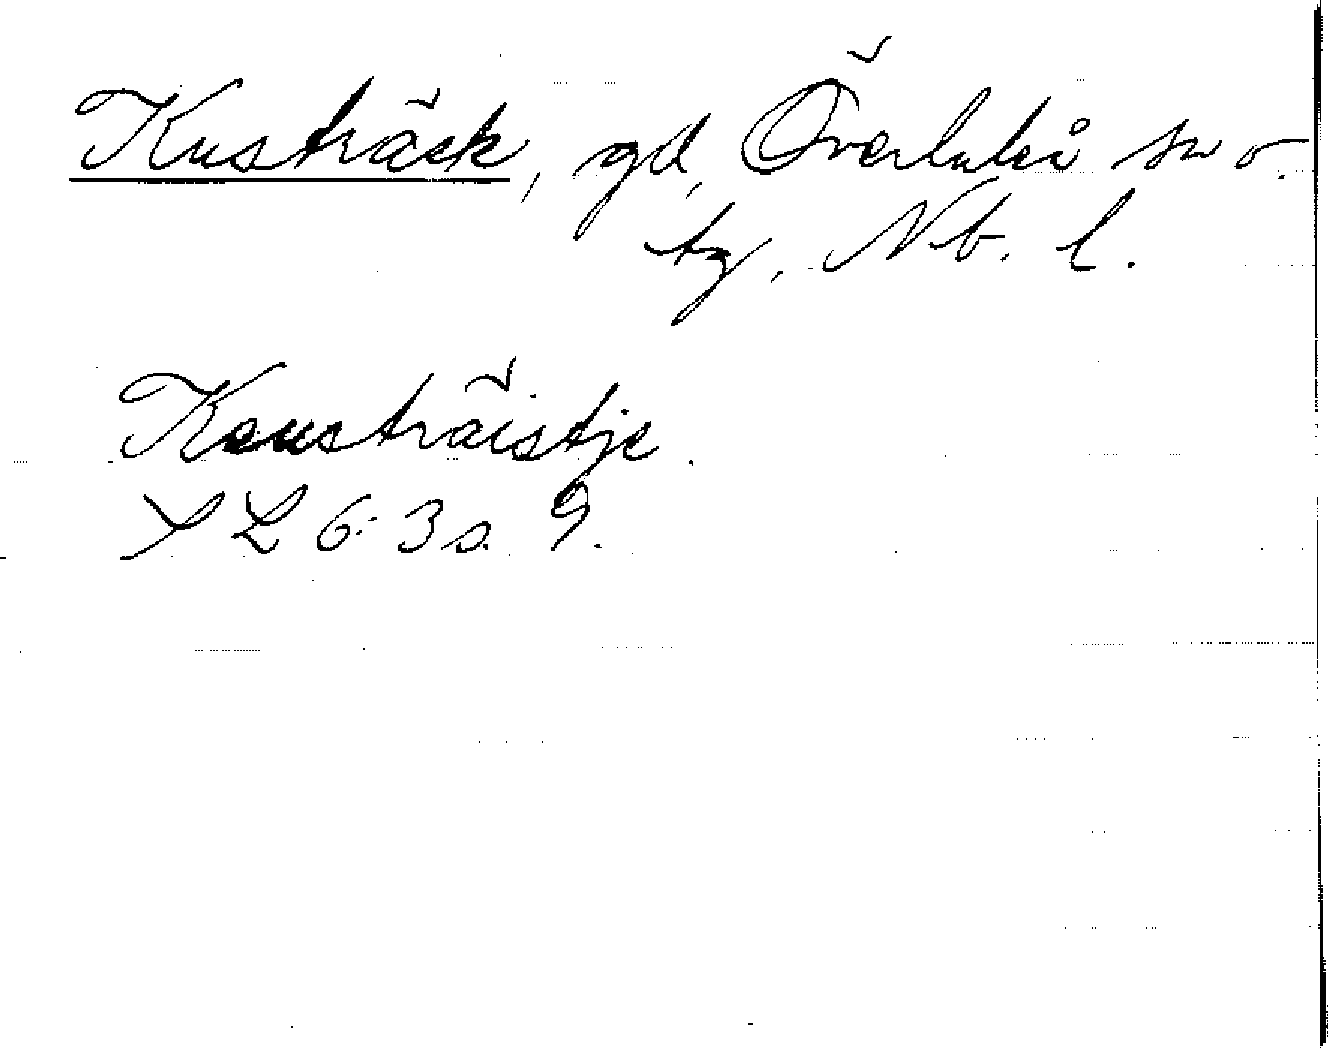 Kusträsk, gd, Överluleå sn o.
tg, Nb. l.
Keusträistje.
S L 6:3 s. 9.